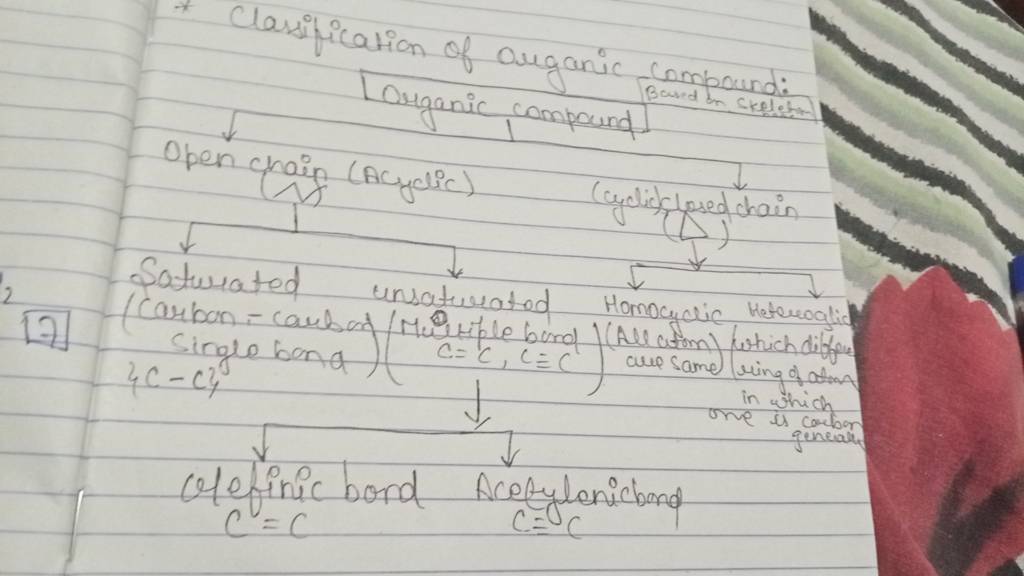 * Classification of organic compound:
Based on skeleton
Organic compound
Open chain (Acyclic)
(cyclic) closed chain
Saturated
unsaturated
Homocyclic
(Carbon - carbon single bond)
{C - C}
(Multiple bond
C = C, C ≡ C)
(All atom are same)
(which differ
ring of atom
in which
one is carbon
generally
Olefinic bond
C = C
Acetylenic bond
C ≡ C
7
2